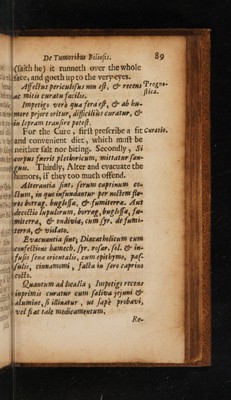 De Tumoribus Biliosis. 89
(saith he) it runneth over the whole
face, and goeth up to the very eyes.
Affectus periculosus non est, & recens
ac mitis curatu facilis.
Progno-
stica.
Impetigo verò quæ fera est, & ab hu-
more pejore oritur, difficilius curatur, &
in lepram transire potest.
For the Cure, first prescribe a fit
Curatio.
and convenient diet, which must be
neither salt nor biting. Secondly, Si
corpus fuerit plethoricum, mittatur san-
guis. Thirdly, Alter and evacuate the
humors, if they too much offend.
Alterantia sint, serum caprinum co-
ctum, in quo infundantur per noctem flo-
res borrag. buglossæ, & fumiterræ. Aut
decoctio lupulorum, borrag, buglossæ, fu-
miterræ, & endiviæ, cum syr. de fumi-
terrâ, & violato.
Evacuantia sint, Diacatholicum cum
confectione hamech, syr. rosar. sol. & in-
fusis sena orientalis, cum epithymo, pas-
sulis, cinnamomi, facta in sero caprino
cocto.
Quantum ad localia; Impetigo recens
inprimis curatur cum saliva jejuni &
alumine, si illinatur, ut sæpè probavi,
vel fiat tale medicamentum.
Re-